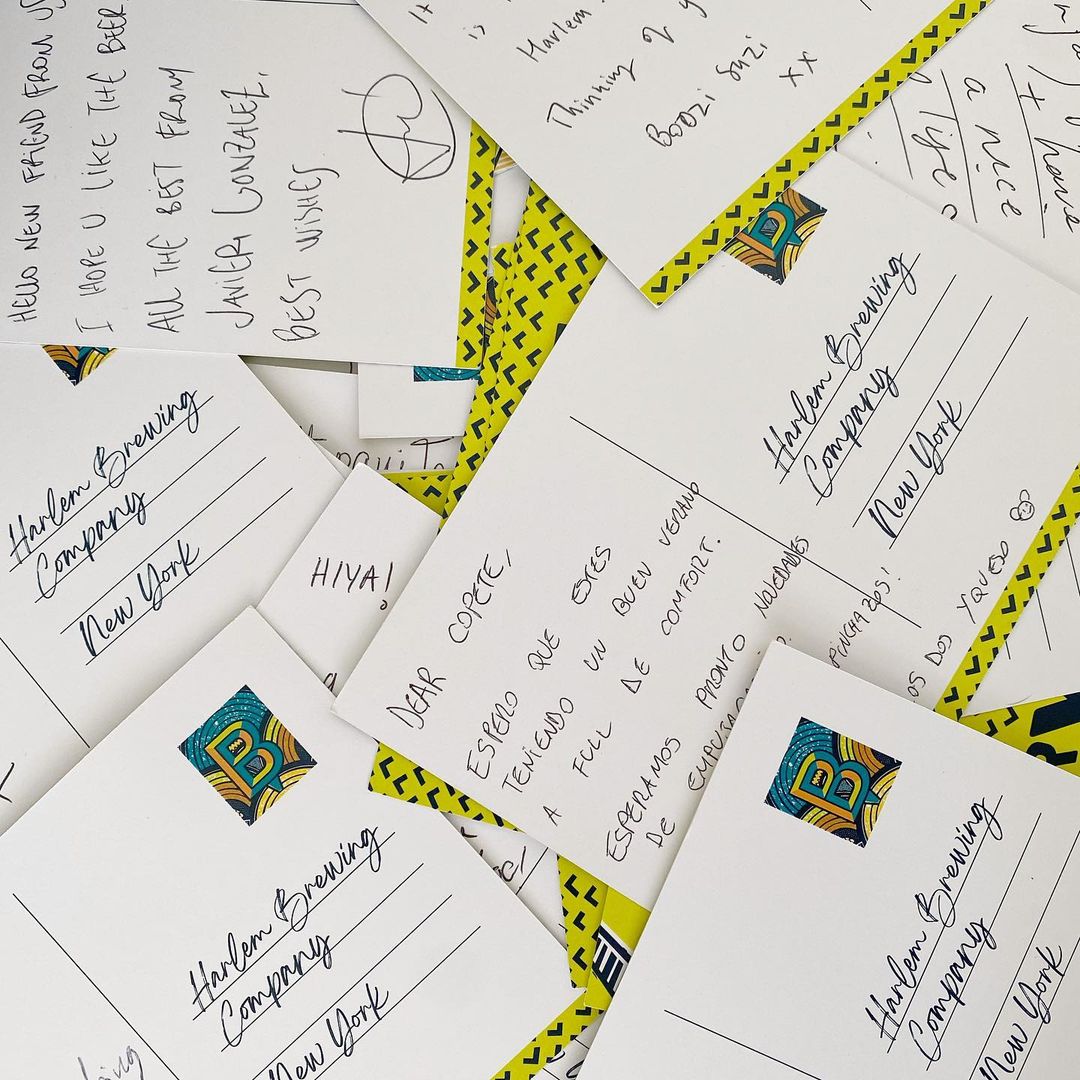 HELLO NEW FRIEND FROM US
I HOPE U LIKE THE BEER
ALL THE BEST FROM
JAVIER GONZALEZ,
BEST WISHES
It
is
Harlem
Thinning of y
Boozi Suzi
xx
+ have
a nice
life
Harlem Brewing
Company
New York
Harlem Brewing
Company
New York
HIYA!
DEAR COPETE,
ESPERO QUE ESTES
TENIENDO UN BUEN VERANO
A FULL DE COMFORT.
ESPERAMOS PRONTO NOVEDADES
DE
PINCHAZOS!
OS DOS YQUESO
B
Harlem Brewing
Company
New York
B
Harlem Brewing
Company
New York